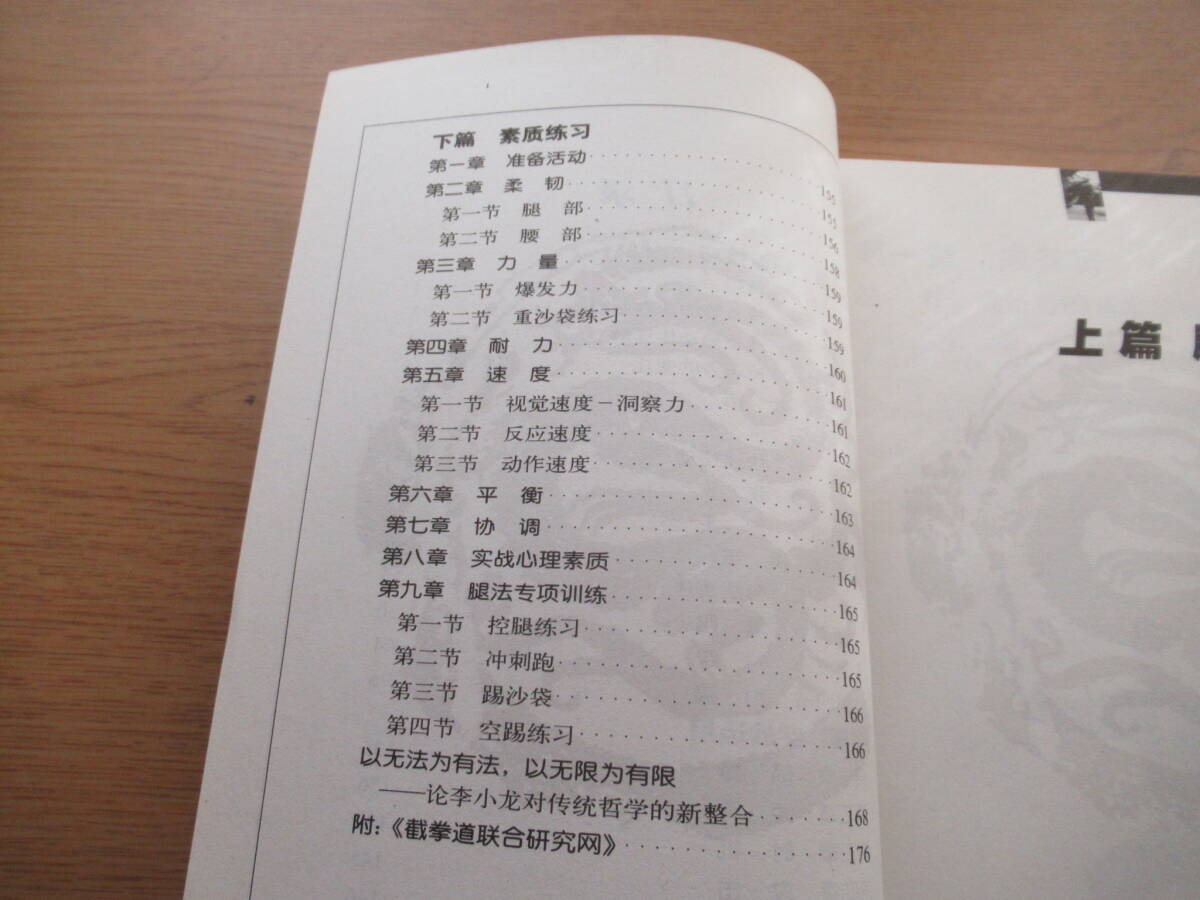 下篇 素质练习
第一章 准备活动 ·················· 155
第二章 柔 韧 ·················· 155
第一节 腿 部 ·················· 156
第二节 腰 部 ·················· 158
第三章 力 量 ·················· 159
第一节 爆发力 ·················· 159
第二节 重沙袋练习 ·················· 159
第四章 耐 力 ·················· 160
第五章 速 度 ·················· 161
第一节 视觉速度－洞察力 ·················· 161
第二节 反应速度 ·················· 162
第三节 动作速度 ·················· 162
第六章 平 衡 ·················· 163
第七章 协 调 ·················· 164
第八章 实战心理素质 ·················· 164
第九章 腿法专项训练 ·················· 165
第一节 控腿练习 ·················· 165
第二节 冲刺跑 ·················· 165
第三节 踢沙袋 ·················· 166
第四节 空踢练习 ·················· 166
以无法为有法，以无限为有限
——论李小龙对传统哲学的新整合 ········ 168
附：《截拳道联合研究网》 ·················· 176
上篇